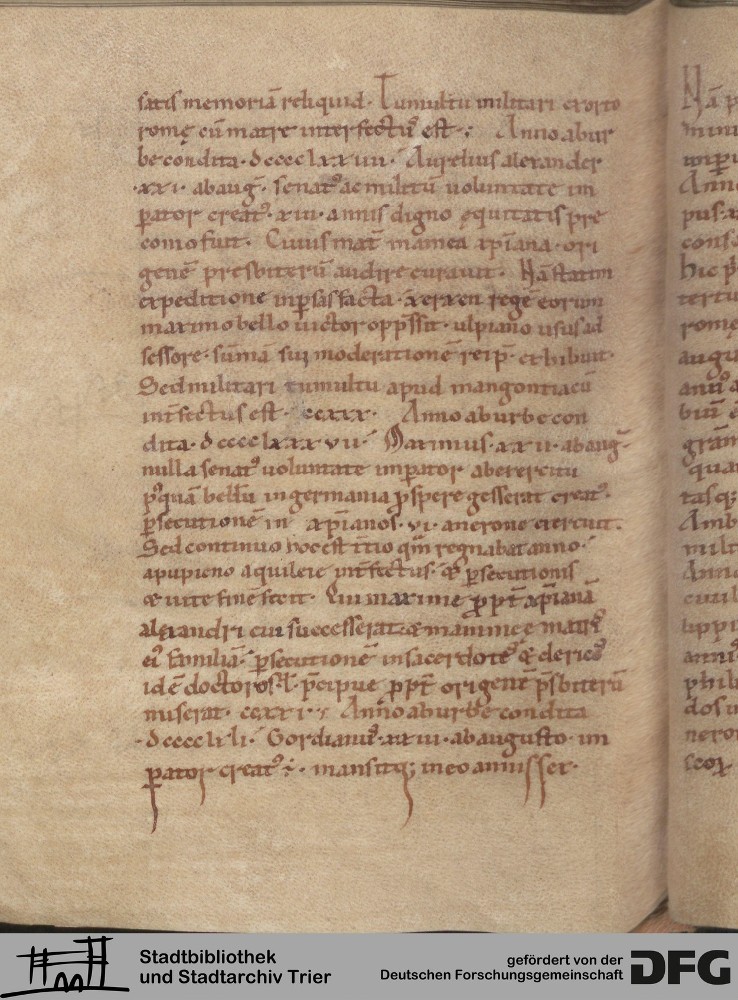 satis memoriā reliquid· Tumultu militari exorto
romę cū matre interfectꝰ est·: Anno ab ur
be condita· dcccclxxiiii· Aurelius alexander
·xxi· ab auḡ· senatꝰ ac militū uoluntate im
ꝑator creatꝰ· xiii· annis digno ęquitatis pre
conio fuit· Cuius mat̄ mamea xp̄iana· ori
genē presbiterū audire curauit· Nā statim
expeditione in ꝑsas facta· xerxen rege eorum
maximo bello uictor opp̄ssit· ulpiano usus ad
sessore· sūmā sui moderationē reip̄· exhibuit·
Sed militari tumultu apud mangontiacū
int̄fectus est· ccxix· Anno ab urbe con
dita· dcccclxxxvii· Maximus· xxii· ab auḡ·
nulla senatꝰ uoluntate imꝑator ab exercitu
pꝰquā bellū in germania ꝓspere gesserat creatꝰ·
ꝑsecutionē in xp̄ianos· vi· a nerone exercuit·
Sed continuo hoc est t̄tio qm̄ regnabat anno·
a pupieno aquileie int̄fectus· & ꝑsecutionis
& uite finē fecit· Qui maxime ꝓpt̄ xp̄ianā
alexandri cui successerat & mammeę matris
eiꝰ familiā· ꝑsecutionē in sacerdotes & clericos
id ē doctores ł p̄cipue ꝓpt̄ origenē p̄sbiterū
miserat· ccxxi·: Anno ab urbe condita
·dccccli·li· Gordianus· xxiii· ab augusto· im
ꝑator creatꝰ ÷· mansitq; in eo annis sex·
Stadtbibliothek
und Stadtarchiv Trier
gefördert von der
Deutschen Forschungsgemeinschaft
DFG